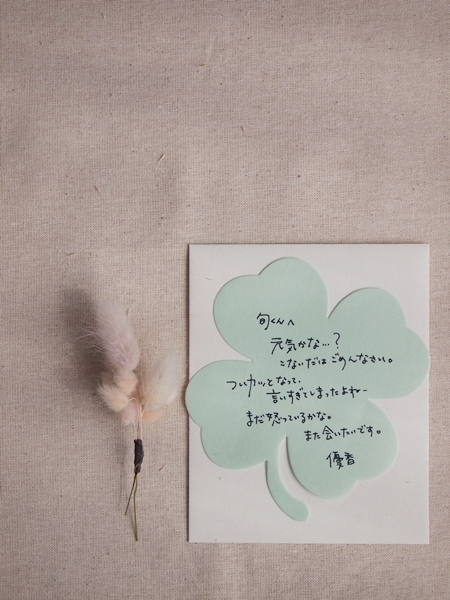 旬くんへ
元気かな…?
こないだはごめんなさい。
ついカッとなって、
言いすぎてしまったよねー
まだ怒っているかな。
また会いたいです。
優香